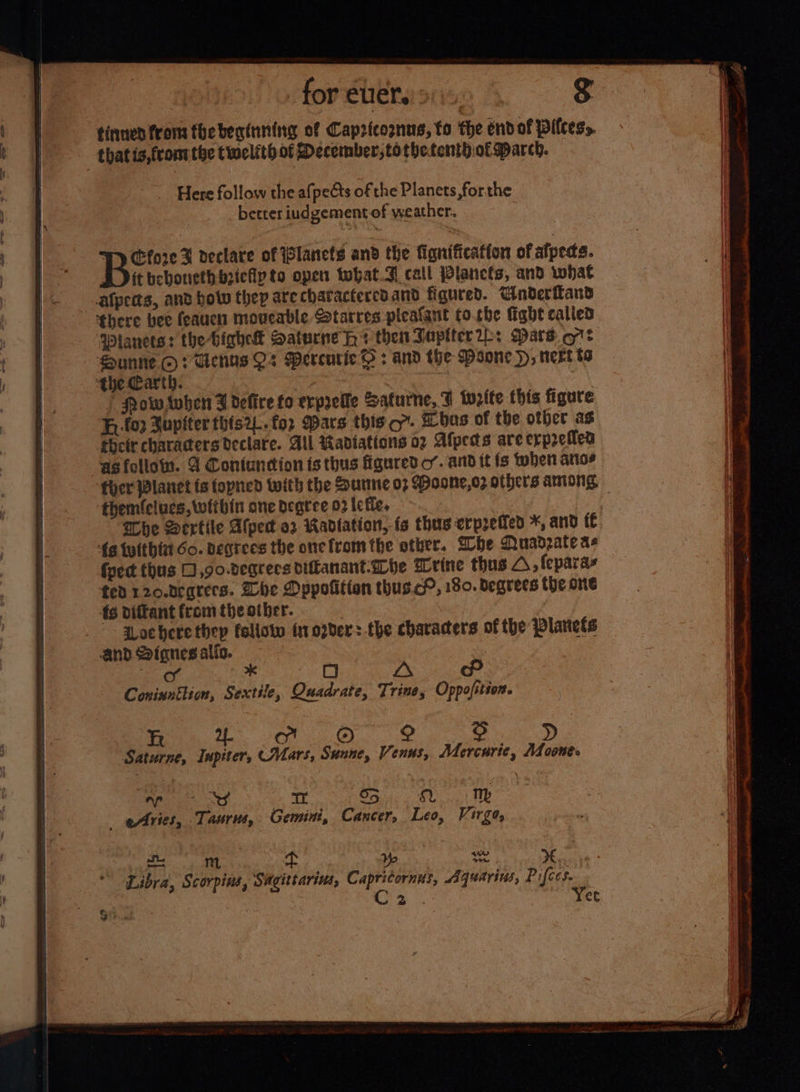 for euer. 8
tinued from the beginning of Capricornus, to the end of Pisces,
that is, from the twelfth of December, to the tenth of March.
Here follow the aſpects of the Planets, for the
better iudgement of weather.
BEfore I declare of Planets and the ſignification of aſpects.
it behoueth briefly to open what I call Planets, and what
aſpects, and how they are charactered and figured. Vnderſtand
there bee ſeauen moueable Starres pleaſant to the ſight called
Planets: the higheſt Saturne ♄ : then Iupiter ♃: Mars ♂:
Sunne ☉: Venus ♀: Mercurie ☿ : and the Moone ☽, next to
the Earth.
Now when I deſire to expreſſe Saturne, I write this figure
♄. for Iupiter this ♃. for Mars this ♂. Thus of the other as
their characters declare. All Radiations or Aſpects are expreſſed
as follow. A Coniunction is thus figured ☌. and it is when ano-
ther Planet is ioyned with the Sunne or Moone, or others among
themſelues, within one degree or leſſe.
The Sextile Aſpect or Radiation, is thus expreſſed ⚹, and it
is within 60. degrees the one from the other. The Quadrate a-
ſpect thus □, 90. degrees diſtanant. The Trine thus △, ſepara-
ted 120. degrees. The Oppoſition thus ☍, 180. degrees the one
is diſtant from the other.
Loe here they follow in order: the characters of the Planets
and Signes alſo.
☌ ⚹ □ △ ☍
Coniunction, Sextile, Quadrate, Trine, Oppoſition.
♄ ♃ ♂ ☉ ♀ ☿ ☽
Saturne, Iupiter, Mars, Sunne, Venus, Mercurie, Moone.
♈ ♉ ♊ ♋ ♌ ♍
Aries, Taurus, Gemini, Cancer, Leo, Virgo,
♎ ♏ ♐ ♑ ♒ ♓
Libra, Scorpius, Sagittarius, Capricornus, Aquarius, Piſces.
C 2 Yet